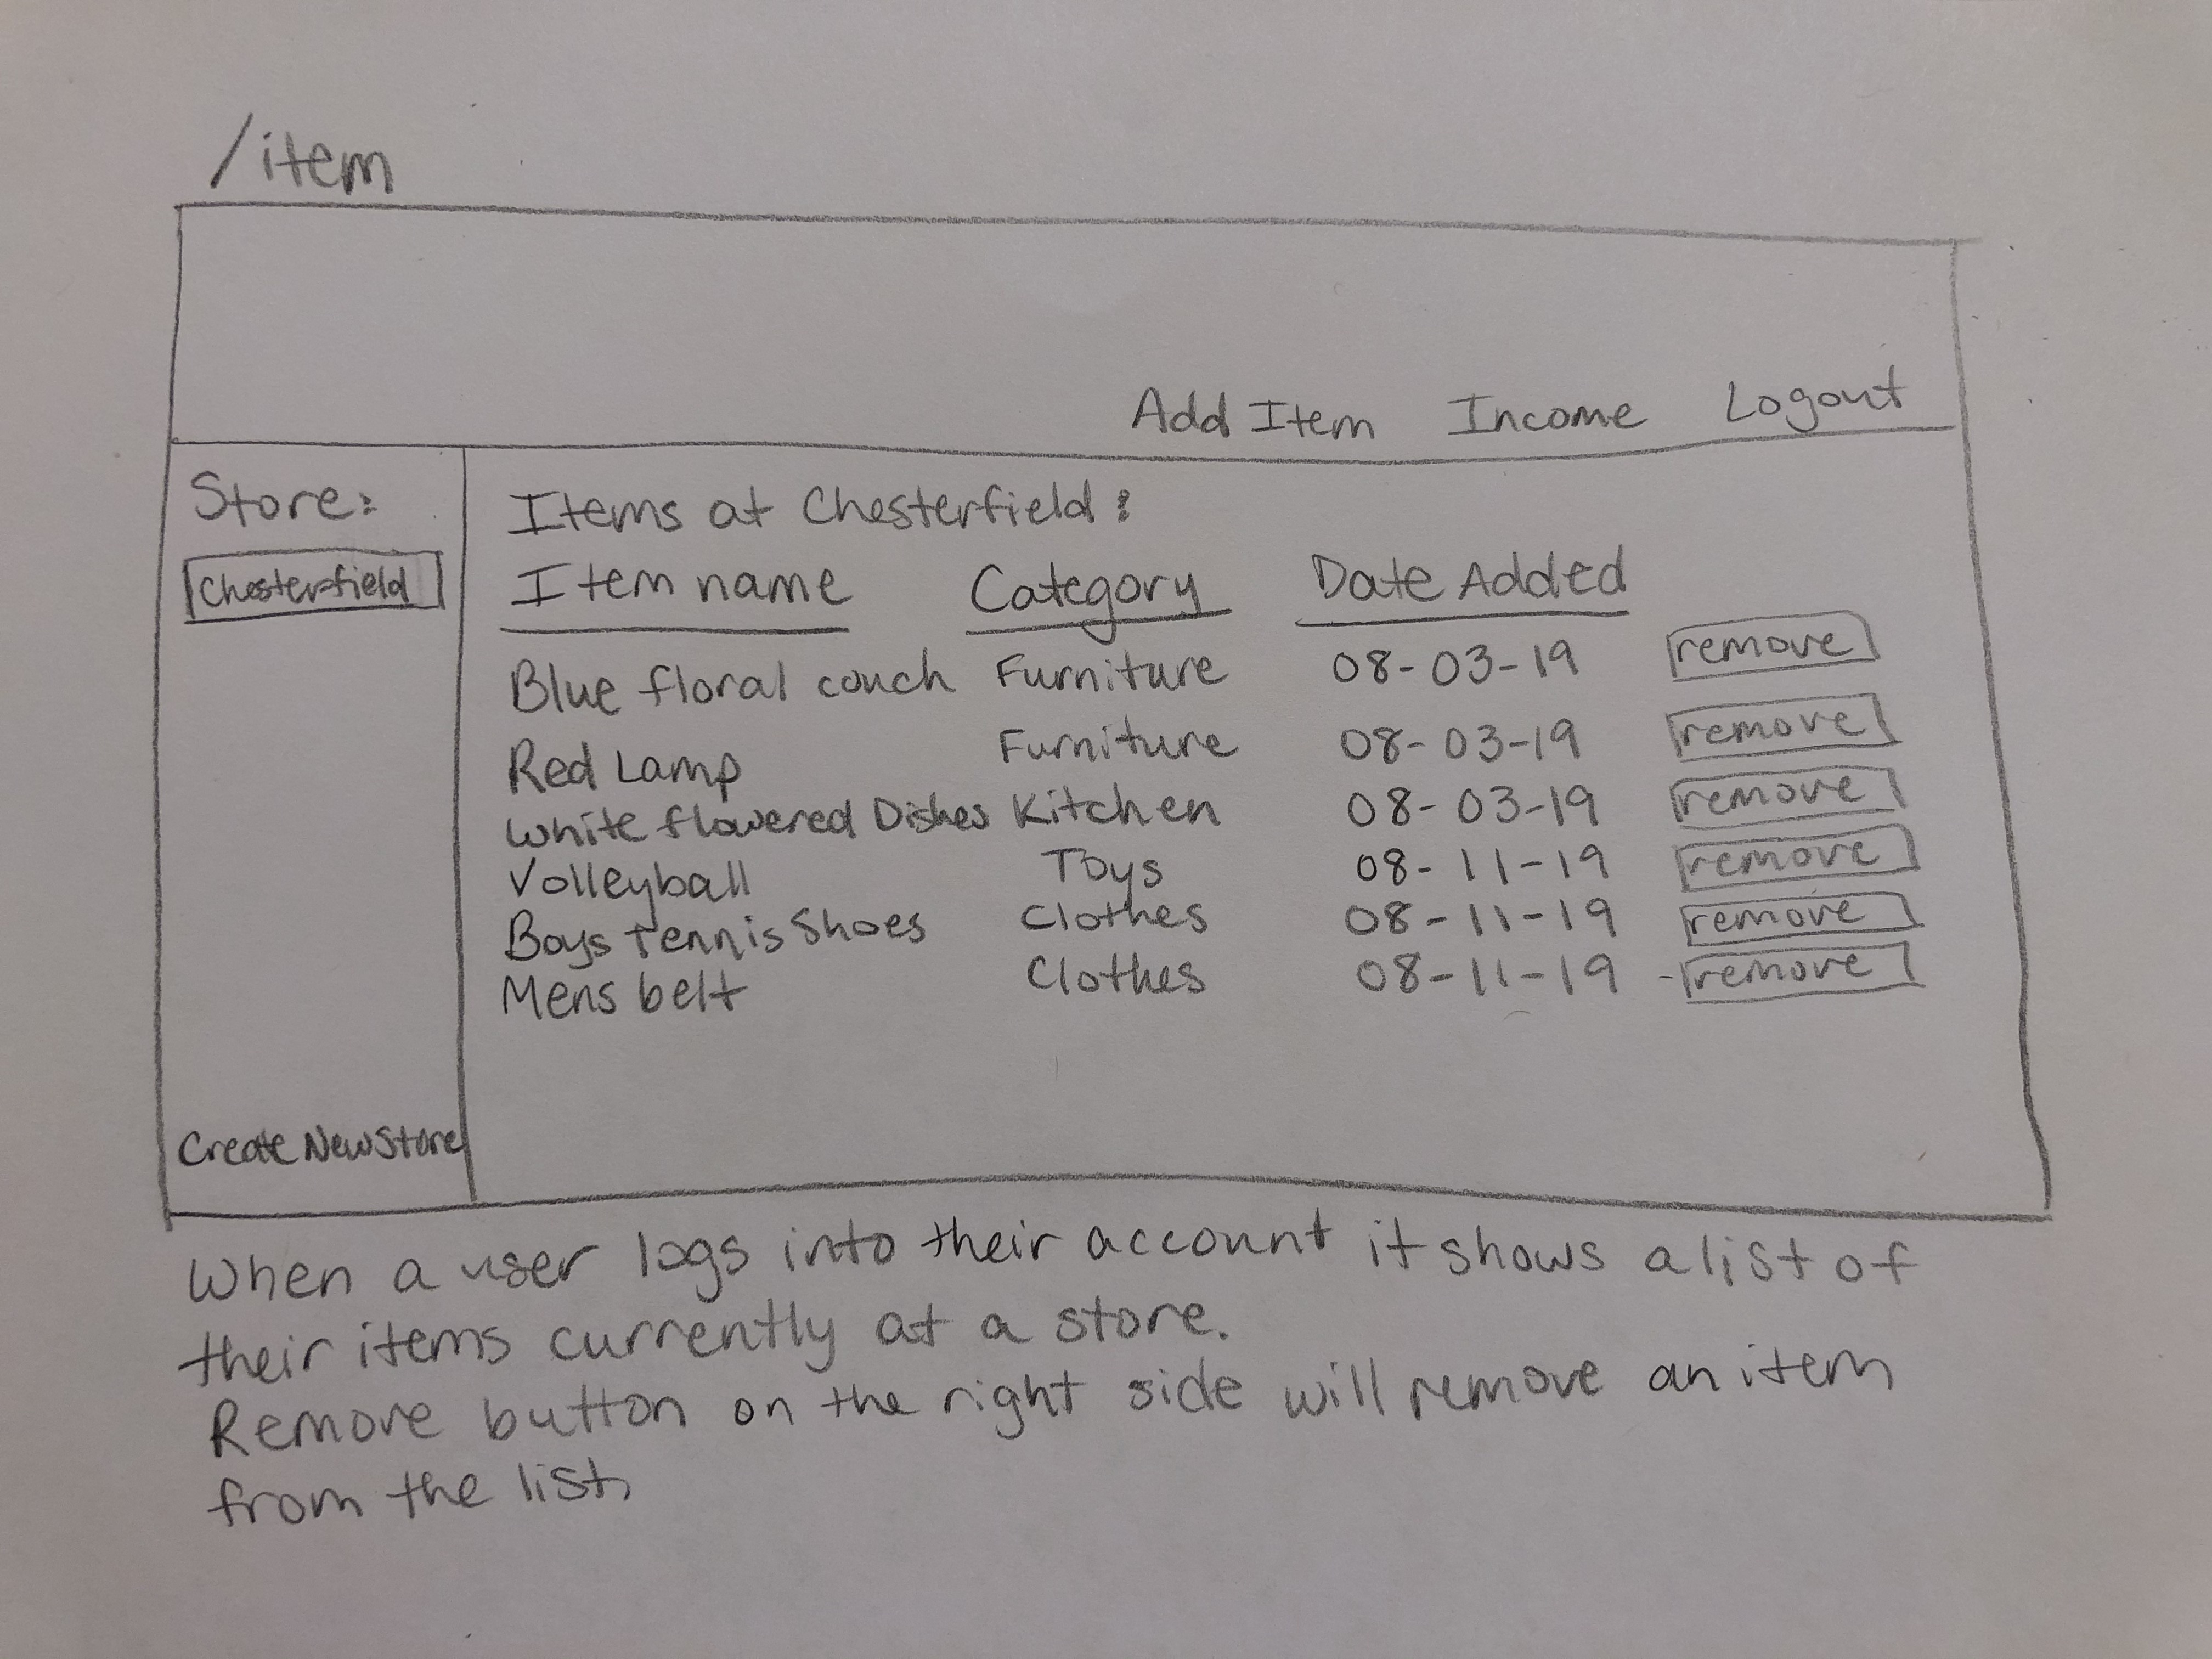 /item
Add Item Income Logout
Store:
Chesterfield
Items at Chesterfield:
Item name Category Date Added
Blue floral couch Furniture 08-03-19 remove
Red Lamp Furniture 08-03-19 remove
White flowered Dishes Kitchen 08-03-19 remove
Volleyball Toys 08-11-19 remove
Boys Tennis Shoes Clothes 08-11-19 remove
Mens belt Clothes 08-11-19 remove
Create New Store
When a user logs into their account it shows a list of
their items currently at a store.
Remove button on the right side will remove an item
from the list.